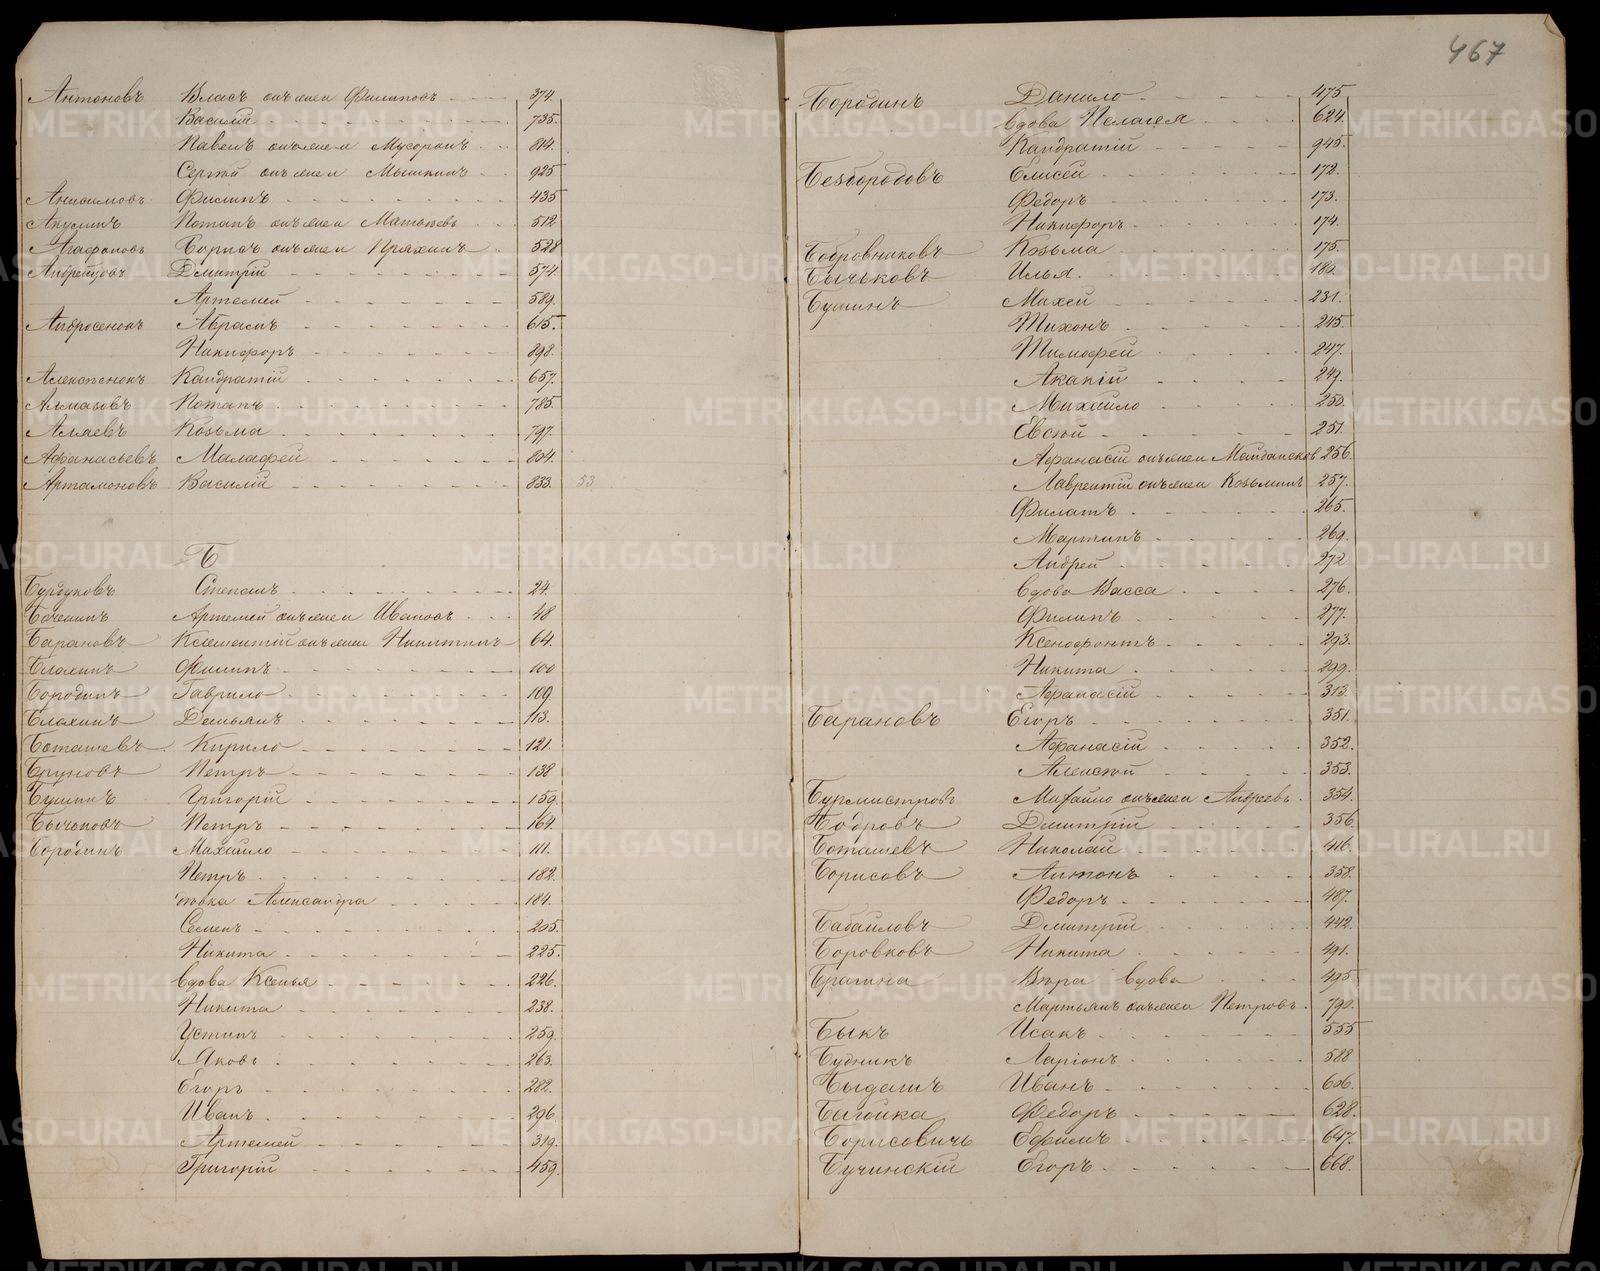 467
Антоновъ Власъ онъ же Филиповъ 374.
Василій 735.
Павелъ онъ же 814.
Сергѣй онъ же Мышкинъ 925
Анисимовъ Филипъ 435
Акулинъ Потапъ онъ же 512
Агафоновъ Борисъ онъ же Пряхинъ 528
Дмитрій 574.
Артемей 589.
Абрамъ 615.
Никифоръ 898.
Кандратій 657.
Алмазовъ Потапъ 785.
Аляевъ Козьма 797.
Афанасьевъ Малафей 804.
Артамоновъ Василій 833. 53
Б
Бурдуковъ Степанъ 24.
Артемей онъ же Ивановъ 48
Барановъ онъ же Никитинъ 64.
Блохинъ Филипъ 100
Бородинъ Гаврило 109
Блохинъ Демьянъ 113.
Боташевъ Кирило 121.
Бруновъ Петръ 138
Бушинъ Григорій 159.
Бычьковъ Петръ 164.
Бородинъ Михайло 111.
Петръ 182.
дѣвка Александра 184.
Семенъ 205.
Никита 225.
вдова Ксенья 226.
Никита 238.
Устинъ 259.
Яковъ 263.
Егоръ 282.
Иванъ 296
Артемей 319.
Григорій 459.
Бородинъ Данило 475
вдова Пелагея 624.
Кандратій 945.
Безбородовъ Елисей 172.
Федоръ 173.
Никифоръ 174.
Бобровниковъ Козьма 175.
Бычьковъ Илья 180.
Бушинъ Михей 231.
Тихонъ 245.
Тимофей 247.
Акакій 249.
Михайло 250.
Евсей 251.
Афанасій онъ же 256.
Лаврентій онъ же Козьминъ 257.
Филатъ 265.
Мартынъ 269.
Андрей 272
вдова Васса 276.
Филипъ 277.
Ксенофонтъ 293.
Никита 299.
Афанасій 313.
Барановъ Егоръ 351.
Афанасій 352.
Алексѣй 353.
Бурмистровъ Михайло онъ же Андреевъ 354.
Бобровъ Дмитрій 356.
Боташевъ Николай 416.
Борисовъ Антонъ 358.
Федоръ 487.
Бабайловъ Дмитрій 442.
Боровковъ Никита 491.
Брагина Вѣра вдова 495
Мартынъ онъ же Петровъ 790.
Быкъ Исакъ 555
Будникъ Ларіонъ 588
Иванъ 606.
Федоръ 628.
Борисовичъ Ефимъ 647.
Бучинскій Егоръ 668.
METRIKI.GASO-URAL.RU